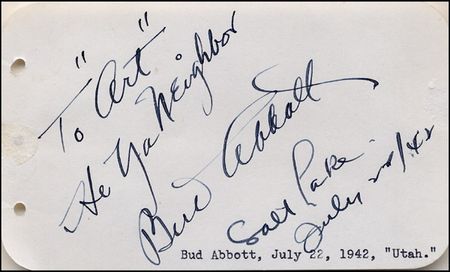 To "Art"
He Ya Neighbor
Bud Abbott
Salt Lake
July 22/42
Bud Abbott, July 22, 1942, "Utah."